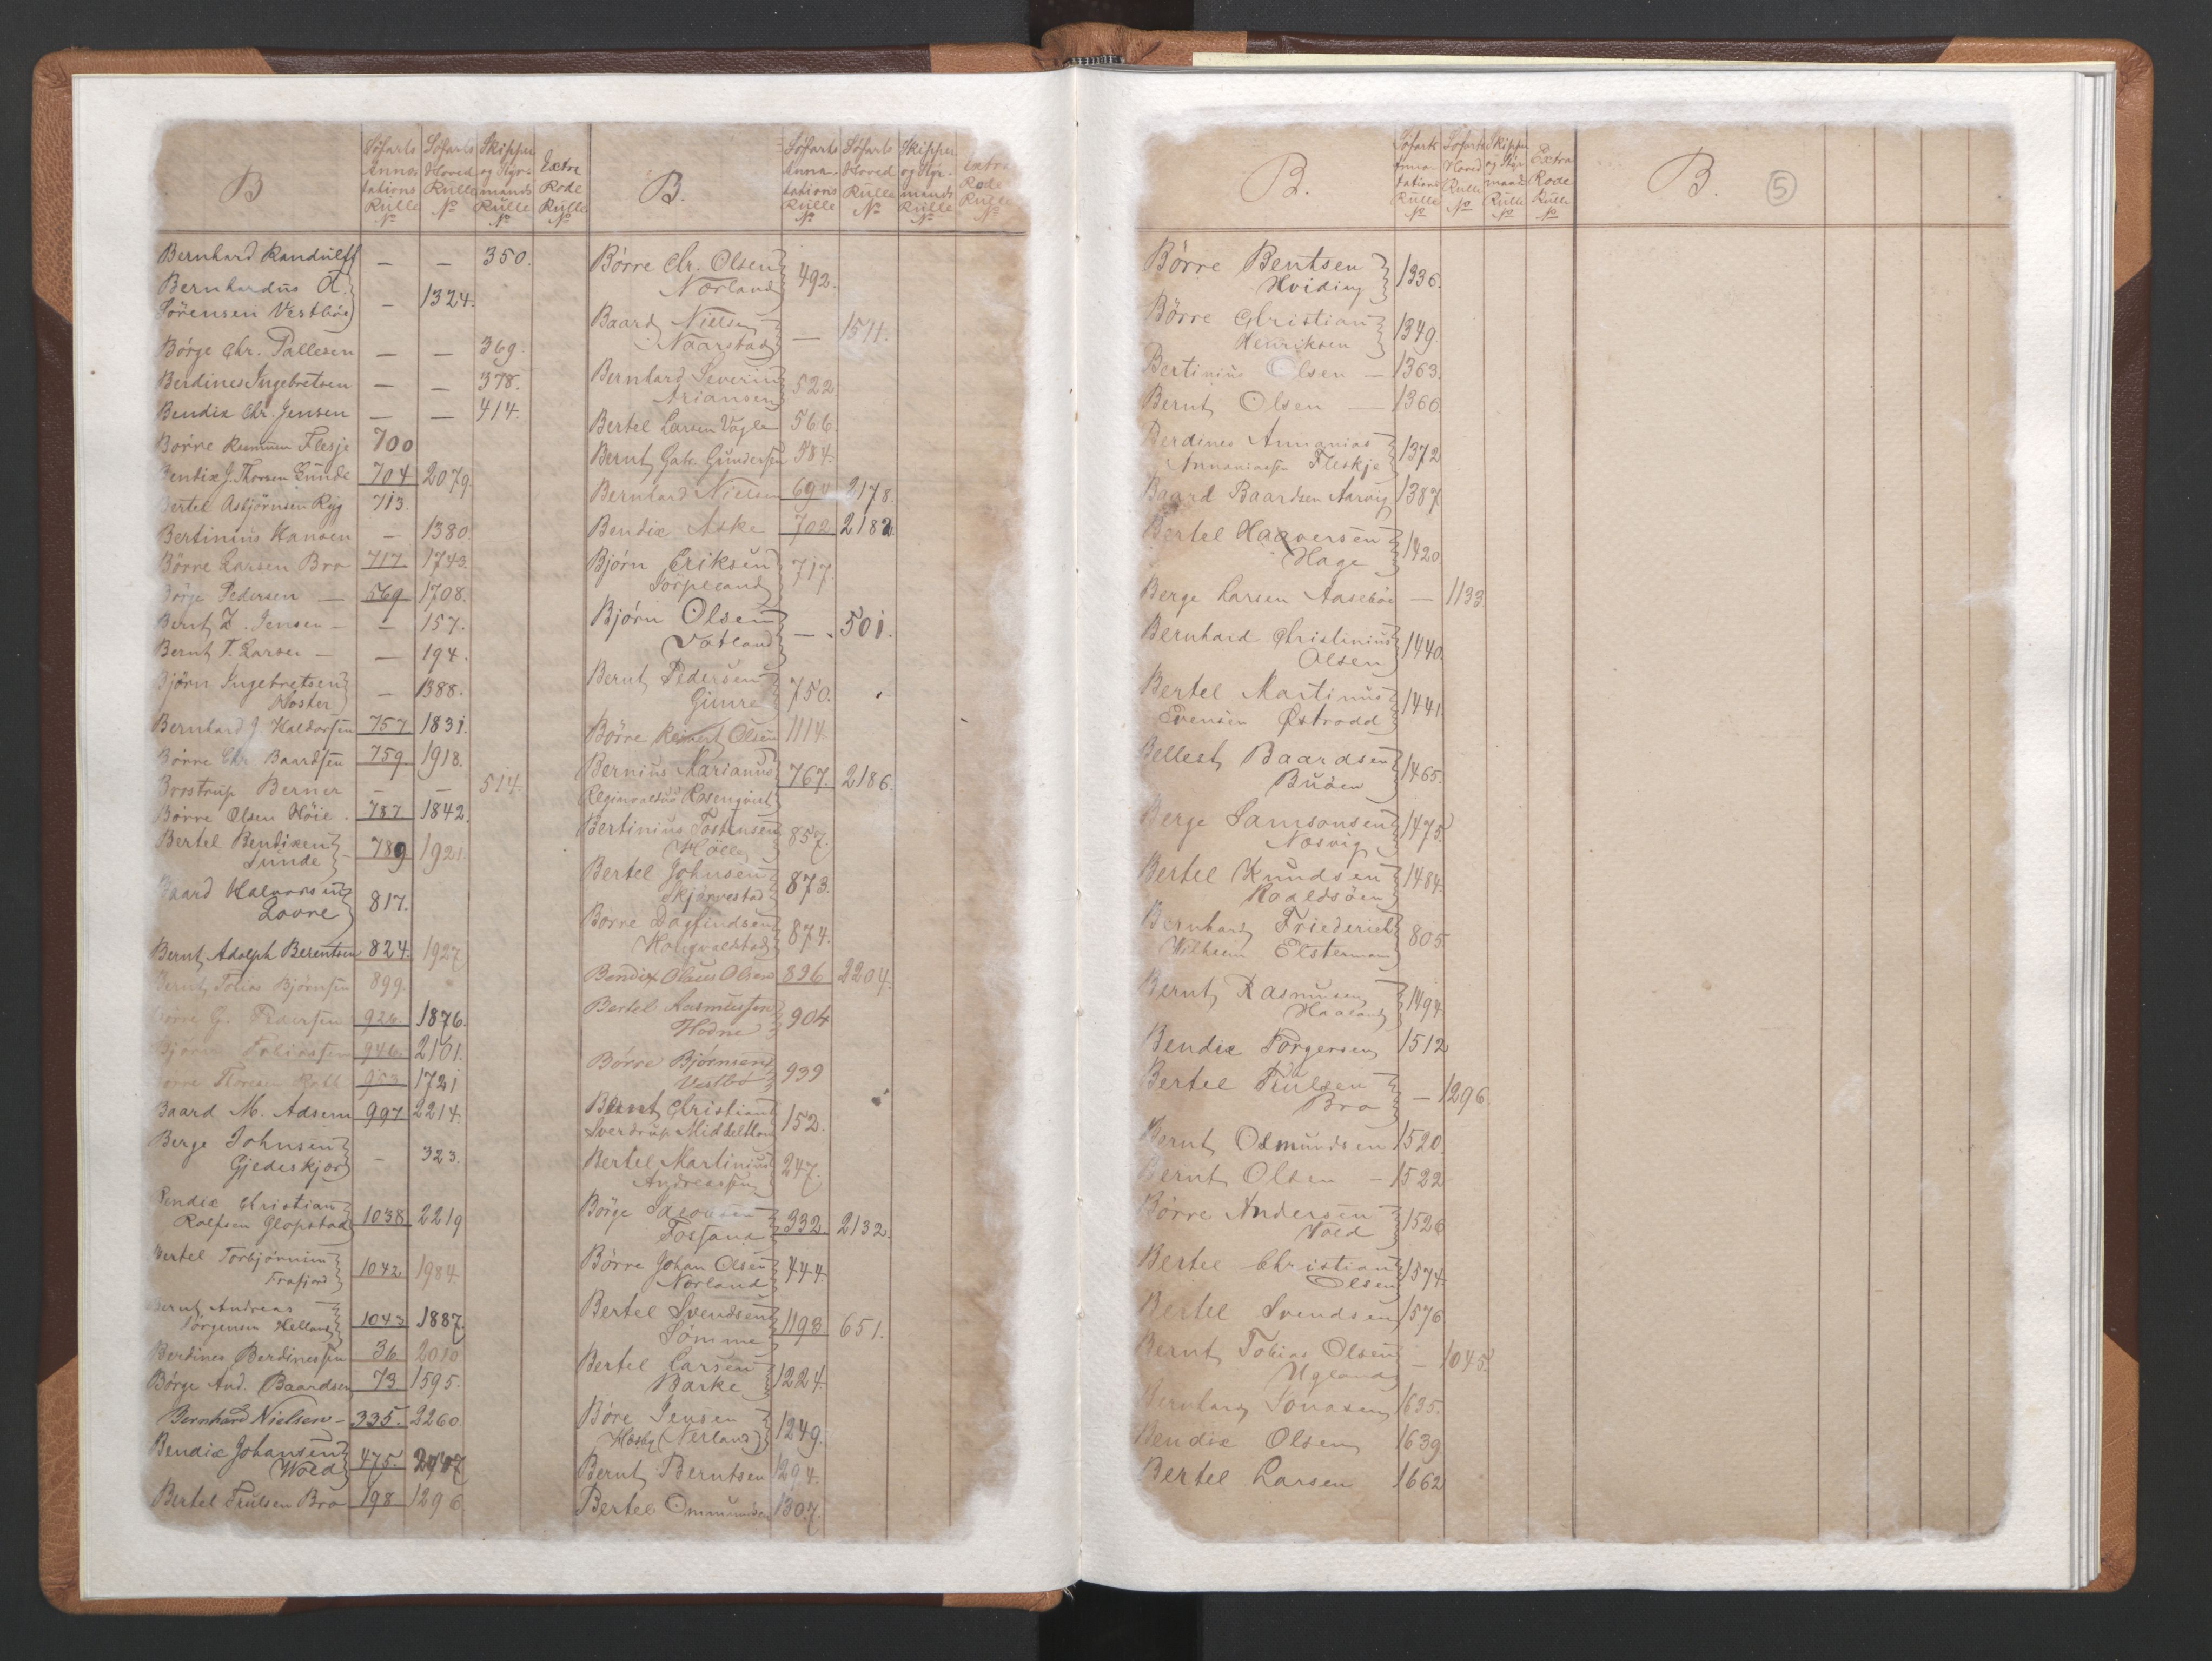 B
Söfarts Anno- tations Rulle No
Söfarts Hoved Rulle No
Skipper og Styr- mands Rulle No
Extra Rode Rulle No
Bernhard Randulff — — 350.
Bernhardus A.
Sörensen Vestböe — 1324.
Börge Chr. Pallesen — — 369.
Berdines Ingebretsen — — 378.
Bendix Chr. Jensen — — 414.
Börre Rasmusen Flesje 700
Bendix J. Thorsen Lunde 704 2079
Bertel Asbjörnsen Ryg 713.
Bertinius Hansen — 1380.
Börre Larsen Bro 717 1743.
Börge Pedersen — 569 1708.
Bernt Z. Jensen — — 157.
Bernt T. Larsen — — 194.
Björn Ingebretsen
Koster — 1388.
Bernhard J Haldorsen 757 1831.
Börre Chr. Baardsen 759. 1918.
Brostrup Berner — — 514.
Börre Olsen Höie. 787. 1842.
Bertel Bendixen
Lunde 789 1921.
Baard Halvorsen
Lovre 817.
Bernt Adolph Berentsen 824. 1927
Bernt Tobias Björnsen 899.
Börre G. Pedersen 926. 1876.
Björn Tobiassen 946. 2101.
Börre Thoresen 953 1721
Baard M. Adsem 997 2214.
Berge Johnsen
Gjedeskjær — 323.
Bendix Christian
Rolfsen Glopstad 1038 2219
Bertel Torbjörnsen
Frafjord 1042 1984.
Bernt Andreas
Jörgensen Helland 1043 1887.
Berdines Berdinessen 36 2010
Börge And. Baardsen 73 1595.
Bernhard Nielsen — 335. 2260
Bendix Johansen
Wold 475. 2447
Bertel Trulsen Bro 198 1296
B.
Söfarts Anno- tations Rulle No
Söfarts Hoved Rulle No
Skipper og Styr- mands Rulle No
Extra Rode Rulle No
Börre Chr. Olsen
Nærland 492.
Baard Nielsen
Naarstad — 1571.
Bernhard Severin
Ariansen 522
Bertel Larsen Vagle 566.
Bernt Gab. Gundersen 584.
Bernhard Nielsen 690 2178.
Bendix Aske 702 2182
Björn Eriksen
Jörpeland 717.
Björn Olsen
Votland — 501.
Bernt Pedersen
Gimre 750.
Börre Reinert Olsen 1114.
Bernius Marianus
Reginvaldus Rosengvist 767. 2186.
Bertinius Tostensen
Hölle 857.
Bertel Johnsen
Skjørvestad 873.
Börre Dagfindsen
Hougvaldstad 874.
Bendix Olaus Olsen 896 2204.
Bertel Rasmussen
Hodne 904
Börre Björnsen
Vestbö 939
Bernt Christian
Sverdrup Middelthon 152.
Bertel Martinius
Andreassen 247.
Börge Jacobsen
Fossand 332. 2132.
Börre Johan Olsen
Norland 444.
Bertel Svendsen
Sömme 1198 651.
Bertel Larsen
Barke 1224.
Böre Jensen
Hæsby (Nerland) 1249.
Bernt Berntsen 1294.
Bertel Ommundsen 1307.
B.
Söfarts Anno- tations Rulle No
Söfarts Hoved Rulle No
Skipper og Styr- mands Rulle No
Extra Rode Rulle No
B.
5
Börre Bentsen
Hviding 1336.
Börre Christian
Henriksen 1349.
Bertinius Olsen — 1363.
Bernt Olsen — 1366.
Berdines Annanias
Annaniassen Fleskje 1372
Baard Baardsen Aarvig 1387
Bertel Haaversen
Hage 1420
Berge Larsen Aaseböe — 1133
Bernhard Christinius
Olsen 1440.
Bertel Martinus
Evensen Østrodd 1441.
Bellest Baardsen
Buöen 1465.
Berge Samsonsen
Næsvig 1475.
Bertel Knudsen
Roaldsöen 1484.
Bernhard Friederich
Wilhelm Elsterman 805.
Bernt Rasmusen
Haaland 1494.
Bendix Torgersen 1512
Bertel Trulsen
Bro — 1296.
Bernt Osmundsen 1520.
Bernt Olsen — 1522
Börre Andersen
Wold 1526
Bertel Christian
Olsen 1574.
Bertel Svendsen 1576
Bernt Tobias Olsen
Ugland — 1045.
Bernhard Jonasen 1635.
Bendix Olsen 1639
Bertel Larsen 1662